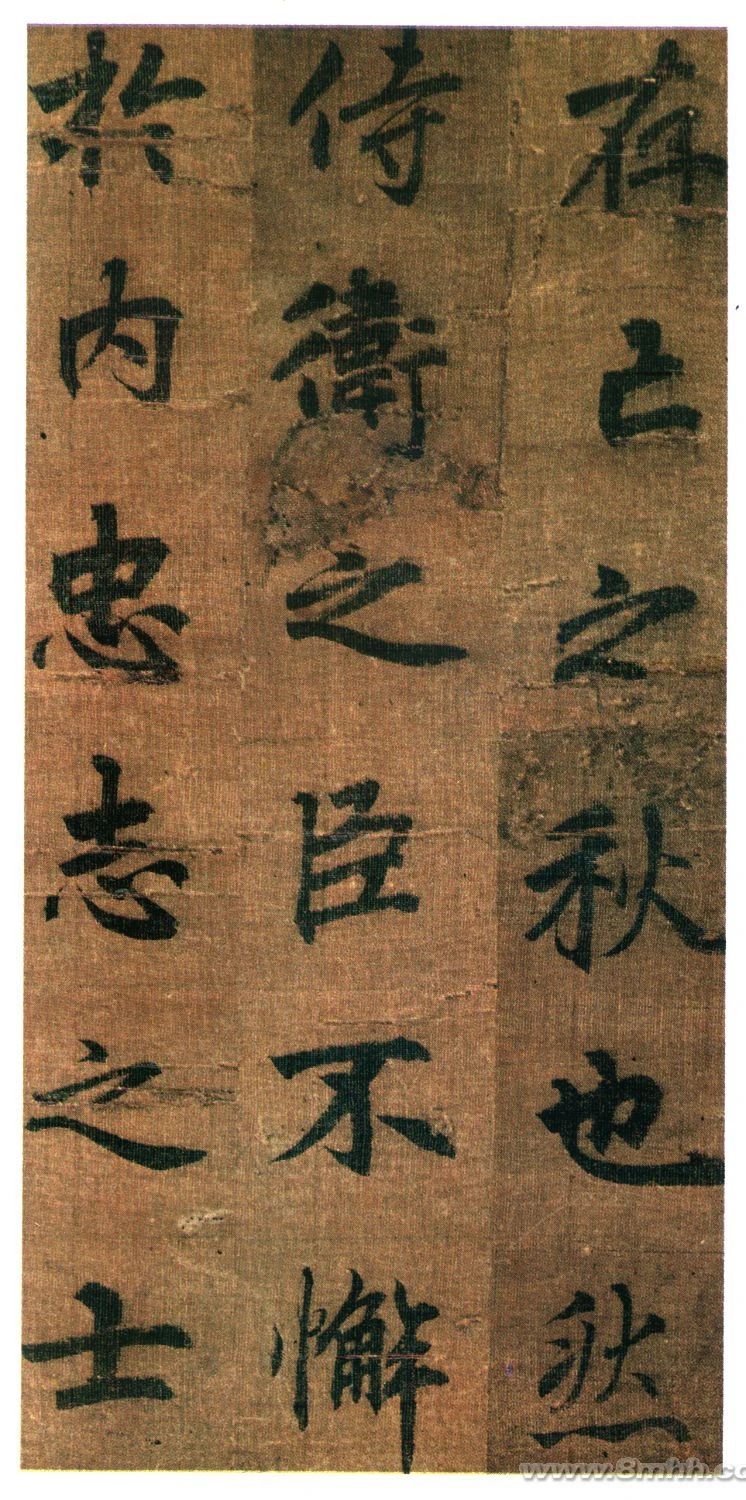 存亡之秋也然
侍衛之臣不懈
於内忠志之士
www.8mhh.co